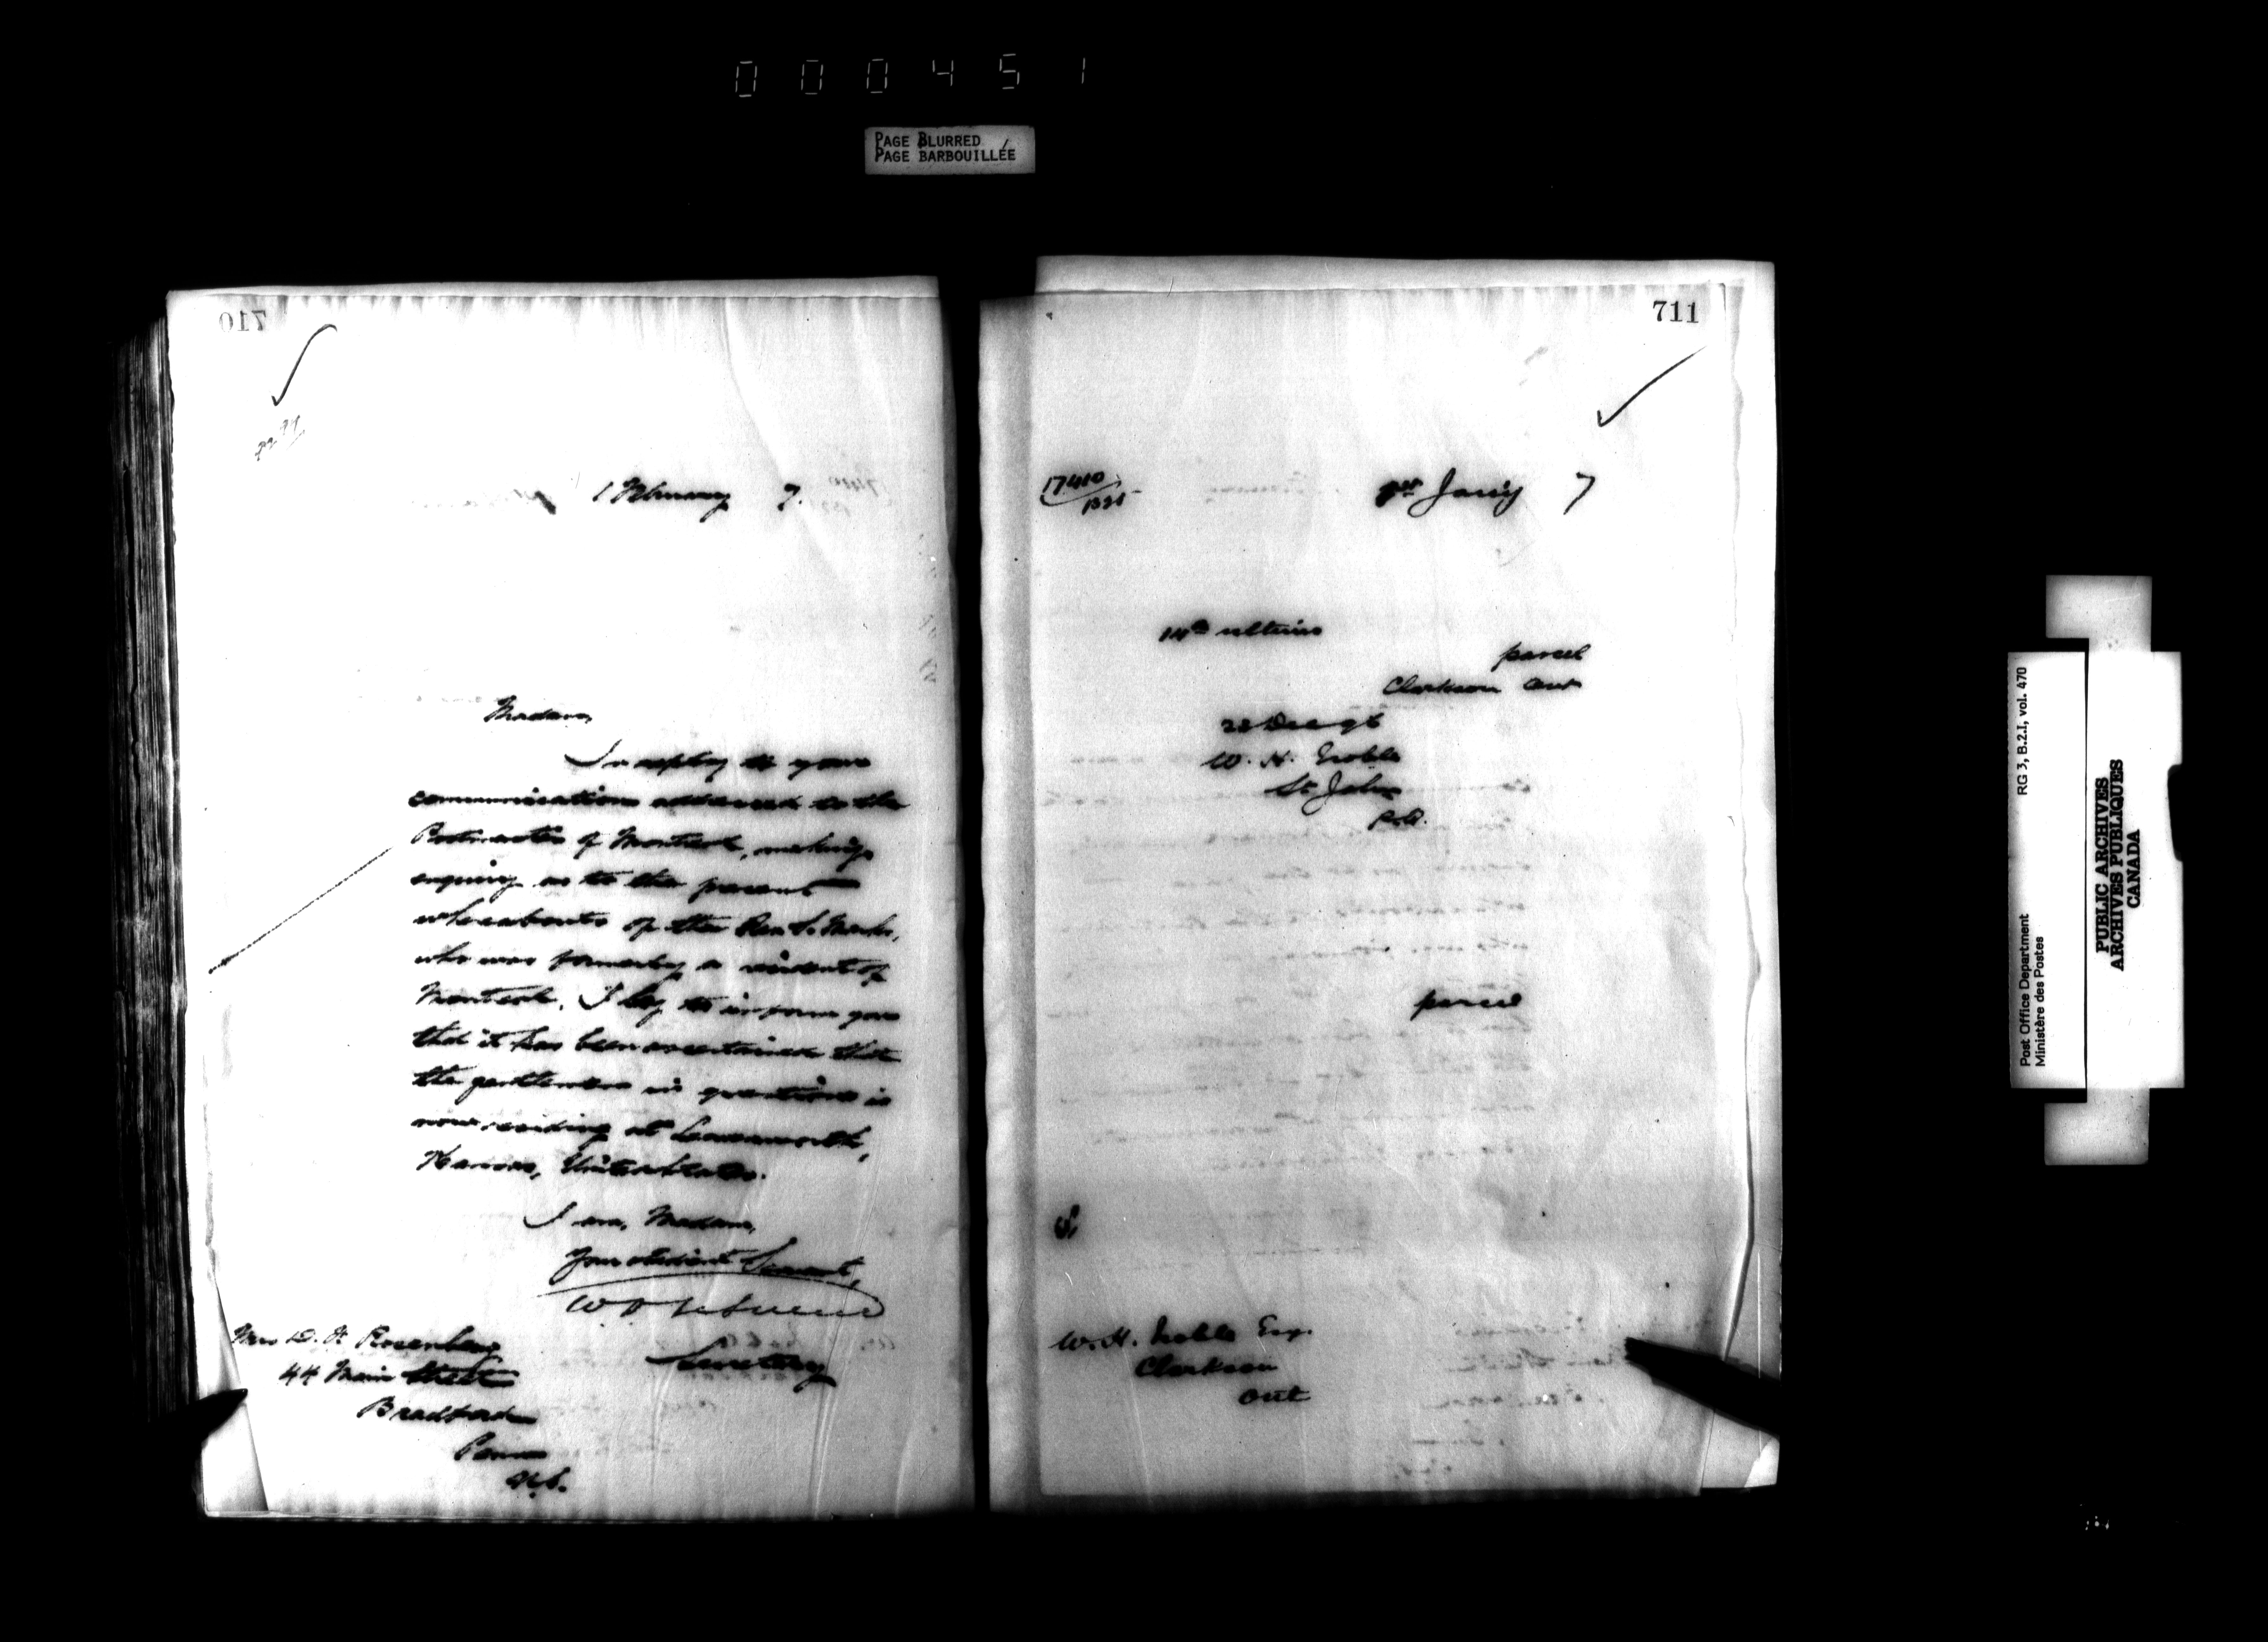 000451
PAGE BLURRED
PAGE BARBOUILLÉE
710
1 February 7.
Madam,
In reply to your
communication addressed to the
Postmaster of Montreal, making
enquiry as to the present
whereabouts of the Rev. S. Marks,
who was formerly a resident of
Montreal, I beg to inform you
that it has been ascertained that
the gentleman in question is
now residing at Leavenworth,
Kansas, United States.
I am, Madam,
Your obedient Servant,
Secretary
Mrs D. H Rosenberg
44 Main Street
Bradford
Penn
U.S.
711
17410
Jany 7
14th ultimo
parcel
Clarkson Ont
22 Dec 96
W. H. Noble
St John
parcel
W. H. Noble Esq.
Clarkson
Ont
Post Office Department
Ministère des Postes
RG 3, B.2.I, vol. 470
PUBLIC ARCHIVES
ARCHIVES PUBLIQUES
CANADA